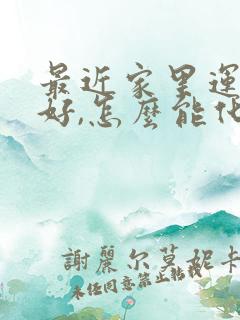 最近家里運
好,怎麼能化
謝麗尔莫妮卡
未任同意禁止転載